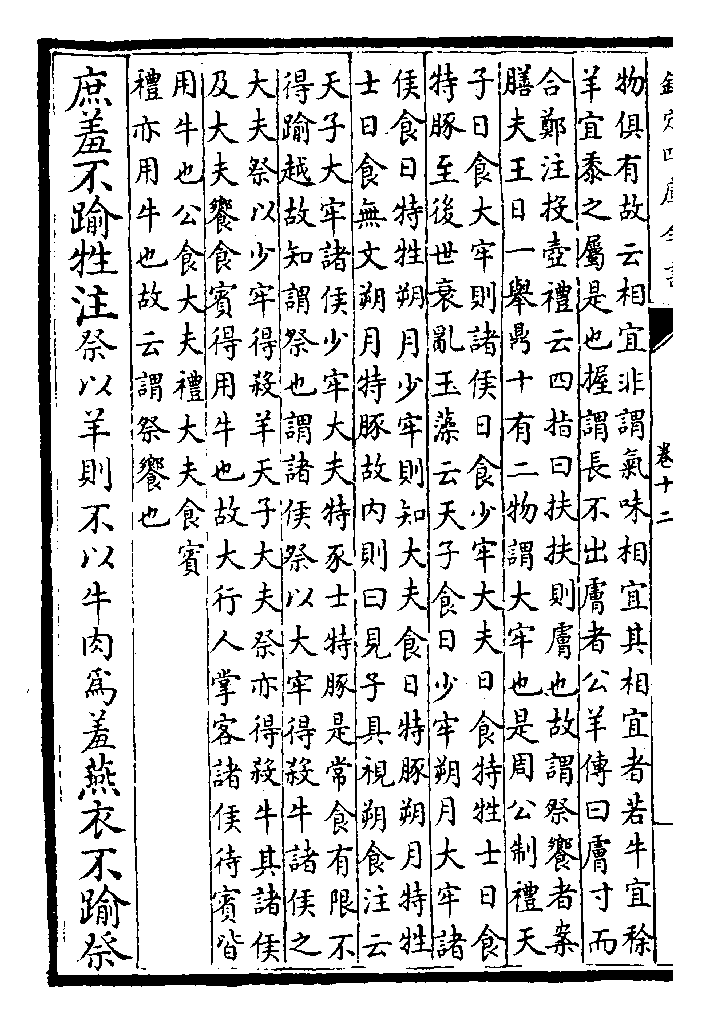 欽定四庫全書
卷十二
物俱有故云相宜非謂氣味相宜其相宜者若牛宜稌
羊宜黍之屬是也握謂長不出膚者公羊傳曰膚寸而
合鄭注投壺禮云四指曰扶扶則膚也故謂祭饗者案
膳夫王日一舉鼎十有二物謂大牢也是周公制禮天
子日食大牢則諸侯日食少牢大夫日食特牲士日食
特豚至後世衰亂玉藻云天子食日少牢朔月大牢諸
侯食日特牲朔月少牢則知大夫食日特豚朔月特牲
士日食無文朔月特豚故内則曰見子具視朔食注云
天子大牢諸侯少牢大夫特豕士特豚是常食有限不
得踰越故知謂祭也謂諸侯祭以大牢得殺牛諸侯之
大夫祭以少牢得殺羊天子大夫祭亦得殺牛其諸侯
及大夫饗食賓得用牛也故大行人掌客諸侯待賓皆
用牛也公食大夫禮大夫食賓
禮亦用牛也故云謂祭饗也
庶羞不踰牲注祭以羊則不以牛肉為羞燕衣不踰祭